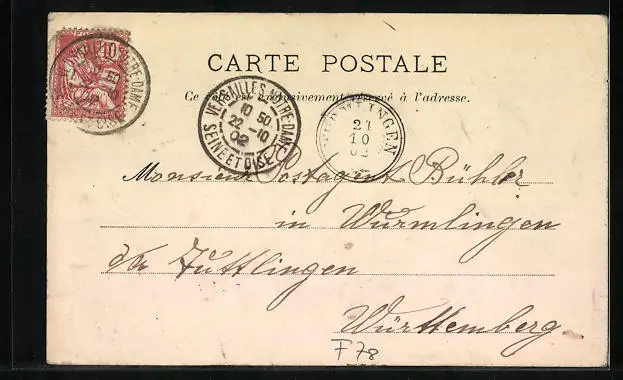 10
CARTE POSTALE
Ce côté est exclusivement réservé à l'adresse.
VERSAILLES NOTRE-DAME
10 50
22 -10
02
SEINE ET OISE
WURMLINGEN
24
10
02
Monsieur Postagent Bühler
in Wurmlingen
Tuttlingen
Württemberg
F78